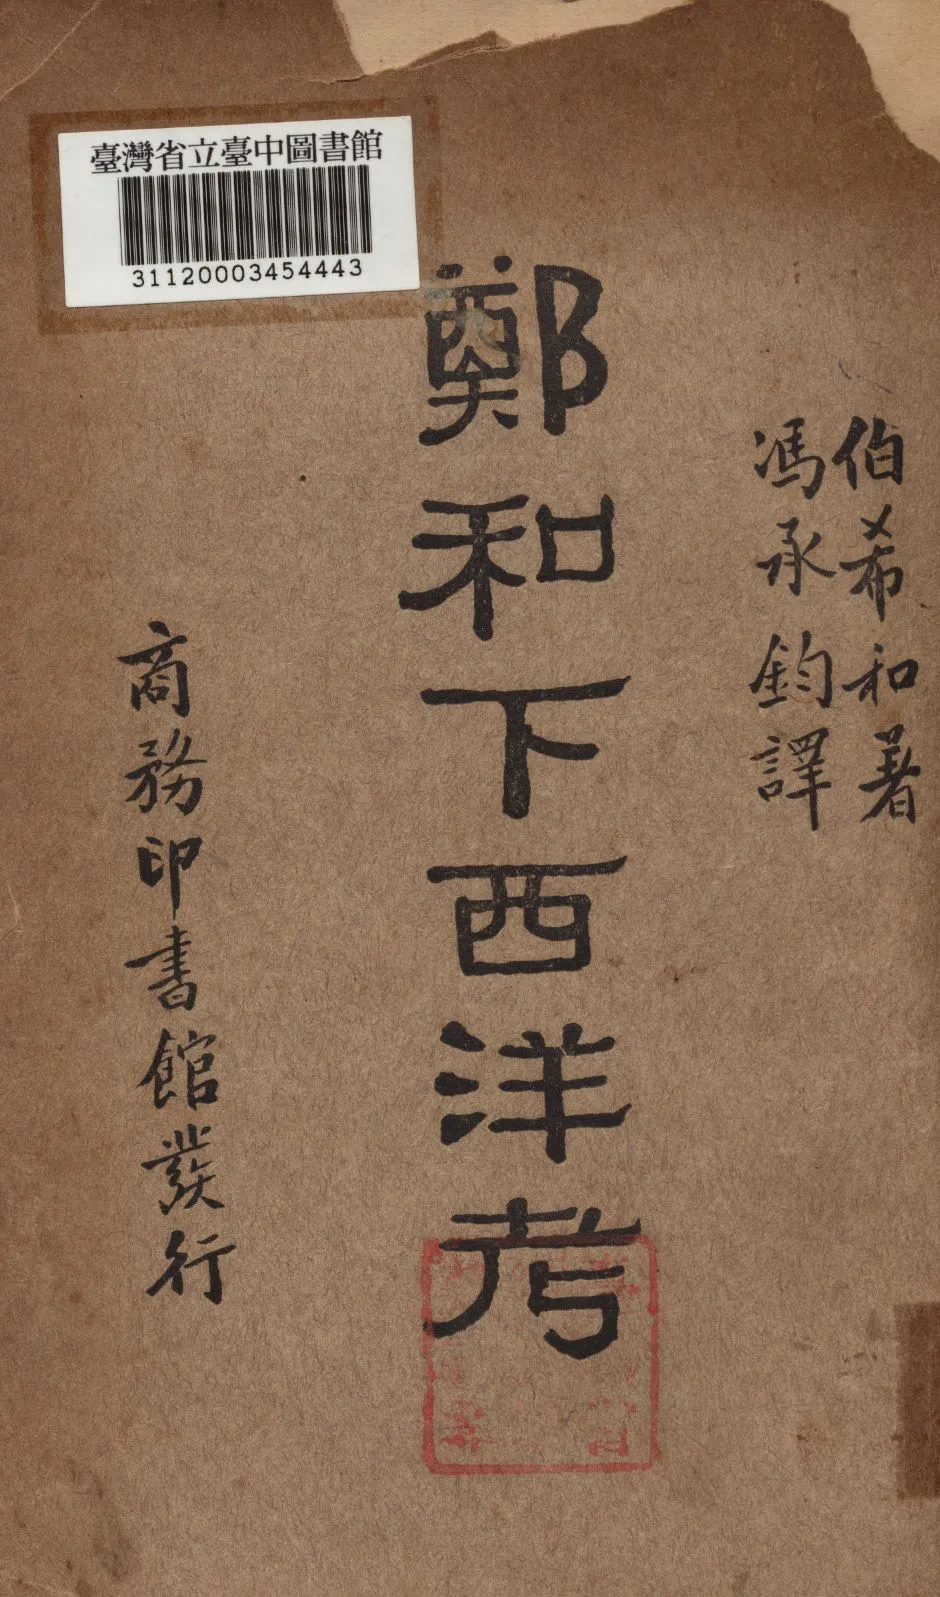 臺灣省立臺中圖書館
31120003454443
伯希和著
馮承鈞譯
鄭和下西洋考
商務印書館發行